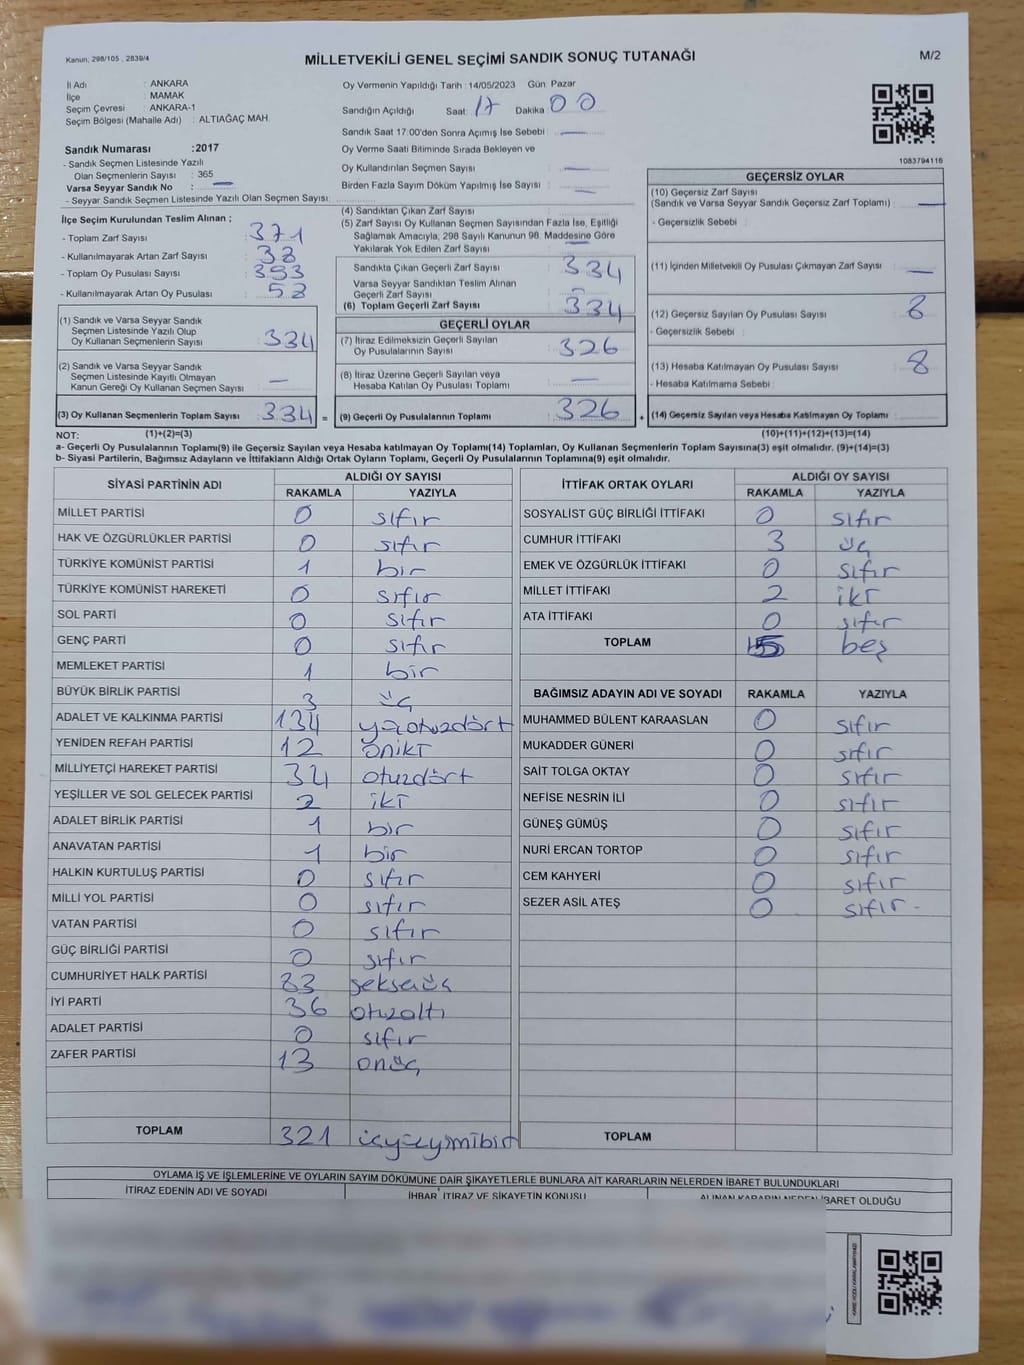 Kanun, 298/105 , 2839/4
MİLLETVEKİLİ GENEL SEÇİMİ SANDIK SONUÇ TUTANAĞI
M/2
İl Adı : ANKARA
İlçe : MAMAK
Seçim Çevresi : ANKARA-1
Seçim Bölgesi (Mahalle Adı) : ALTIAĞAÇ MAH.
Sandık Numarası :2017
- Sandık Seçmen Listesinde Yazılı
Olan Seçmenlerin Sayısı : 365
Varsa Seyyar Sandık No : —
- Seyyar Sandık Seçmen Listesinde Yazılı Olan Seçmen Sayısı:
Oy Vermenin Yapıldığı Tarih : 14/05/2023 Gün: Pazar
Sandığın Açıldığı Saat: 17 Dakika: 00
Sandık Saat 17:00'den Sonra Açımış İse Sebebi : —
Oy Verme Saati Bitiminde Sırada Bekleyen ve
Oy Kullandırılan Seçmen Sayısı : —
Birden Fazla Sayım Döküm Yapılmış İse Sayısı : —
1083794116
İlçe Seçim Kurulundan Teslim Alınan ;
- Toplam Zarf Sayısı : 371
- Kullanılmayarak Artan Zarf Sayısı :
- Toplam Oy Pusulası Sayısı : 393
- Kullanılmayarak Artan Oy Pusulası :
(1) Sandık ve Varsa Seyyar Sandık
Seçmen Listesinde Yazılı Olup
Oy Kullanan Seçmenlerin Sayısı : 334
(2) Sandık ve Varsa Seyyar Sandık
Seçmen Listesinde Kayıtlı Olmayan
Kanun Gereği Oy Kullanan Seçmen Sayısı : —
(3) Oy Kullanan Seçmenlerin Toplam Sayısı : 334 =
(4) Sandıktan Çıkan Zarf Sayısı
(5) Zarf Sayısı Oy Kullanan Seçmen Sayısından Fazla İse, Eşitliği
Sağlamak Amacıyla, 298 Sayılı Kanunun 98. Maddesine Göre
Yakılarak Yok Edilen Zarf Sayısı : —
Sandıkta Çıkan Geçerli Zarf Sayısı : 334
Varsa Seyyar Sandıktan Teslim Alınan
Geçerli Zarf Sayısı : —
(6) Toplam Geçerli Zarf Sayısı : 334
GEÇERLİ OYLAR
(7) İtiraz Edilmeksizin Geçerli Sayılan
Oy Pusulalarının Sayısı : 326
(8) İtiraz Üzerine Geçerli Sayılan veya
Hesaba Katılan Oy Pusulası Toplamı : —
(9) Geçerli Oy Pusulalarının Toplamı : 326 +
GEÇERSİZ OYLAR
(10) Geçersiz Zarf Sayısı
(Sandık ve Varsa Seyyar Sandık Geçersiz Zarf Toplamı) : —
- Geçersizlik Sebebi :
(11) İçinden Milletvekili Oy Pusulası Çıkmayan Zarf Sayısı : —
(12) Geçersiz Sayılan Oy Pusulası Sayısı : 8
- Geçersizlik Sebebi :
(13) Hesaba Katılmayan Oy Pusulası Sayısı : 8
- Hesaba Katılmama Sebebi :
(14) Geçersiz Sayılan veya Hesaba Katılmayan Oy Toplamı :
NOT: (1)+(2)=(3)
(10)+(11)+(12)+(13)=(14)
a- Geçerli Oy Pusulalarının Toplamı(9) ile Geçersiz Sayılan veya Hesaba katılmayan Oy Toplamı(14) Toplamları, Oy Kullanan Seçmenlerin Toplam Sayısına(3) eşit olmalıdır. (9)+(14)=(3)
b- Siyasi Partilerin, Bağımsız Adayların ve İttifakların Aldığı Ortak Oyların Toplamı, Geçerli Oy Pusulalarının Toplamına(9) eşit olmalıdır.
SİYASİ PARTİNİN ADI ALDIĞI OY SAYISI
RAKAMLA YAZIYLA
MİLLET PARTİSİ 0 sıfır
HAK VE ÖZGÜRLÜKLER PARTİSİ 0 sıfır
TÜRKİYE KOMÜNİST PARTİSİ 1 bir
TÜRKİYE KOMÜNİST HAREKETİ 0 sıfır
SOL PARTİ 0 sıfır
GENÇ PARTİ 0 sıfır
MEMLEKET PARTİSİ 1 bir
BÜYÜK BİRLİK PARTİSİ 3 üç
ADALET VE KALKINMA PARTİSİ 134 yüzotuzdört
YENİDEN REFAH PARTİSİ 12 oniki
MİLLİYETÇİ HAREKET PARTİSİ 34 otuzdört
YEŞİLLER VE SOL GELECEK PARTİSİ 2 iki
ADALET BİRLİK PARTİSİ 1 bir
ANAVATAN PARTİSİ 1 bir
HALKIN KURTULUŞ PARTİSİ 0 sıfır
MİLLİ YOL PARTİSİ 0 sıfır
VATAN PARTİSİ 0 sıfır
GÜÇ BİRLİĞİ PARTİSİ 0 sıfır
CUMHURİYET HALK PARTİSİ 83 seksenüç
İYİ PARTİ 36 otuzaltı
ADALET PARTİSİ 0 sıfır
ZAFER PARTİSİ 13 onüç
TOPLAM 321 üçyüzyirmibir
İTTİFAK ORTAK OYLARI ALDIĞI OY SAYISI
RAKAMLA YAZIYLA
SOSYALİST GÜÇ BİRLİĞİ İTTİFAKI 0 sıfır
CUMHUR İTTİFAKI 3 üç
EMEK VE ÖZGÜRLÜK İTTİFAKI 0 sıfır
MİLLET İTTİFAKI 2 iki
ATA İTTİFAKI 0 sıfır
TOPLAM 5 beş
BAĞIMSIZ ADAYIN ADI VE SOYADI RAKAMLA YAZIYLA
MUHAMMED BÜLENT KARAASLAN 0 sıfır
MUKADDER GÜNERİ 0 sıfır
SAİT TOLGA OKTAY 0 sıfır
NEFİSE NESRİN İLİ 0 sıfır
GÜNEŞ GÜMÜŞ 0 sıfır
NURİ ERCAN TORTOP 0 sıfır
CEM KAHYERİ 0 sıfır
SEZER ASİL ATEŞ 0 sıfır
TOPLAM
OYLAMA İŞ VE İŞLEMLERİNE VE OYLARIN SAYIM DÖKÜMÜNE DAİR ŞİKAYETLERLE BUNLARA AİT KARARLARIN NELERDEN İBARET BULUNDUKLARI
İTİRAZ EDENİN ADI VE SOYADI İHBAR, İTİRAZ VE ŞİKAYETİN KONUSU ALINAN KARARIN NEDEN İBARET OLDUĞU